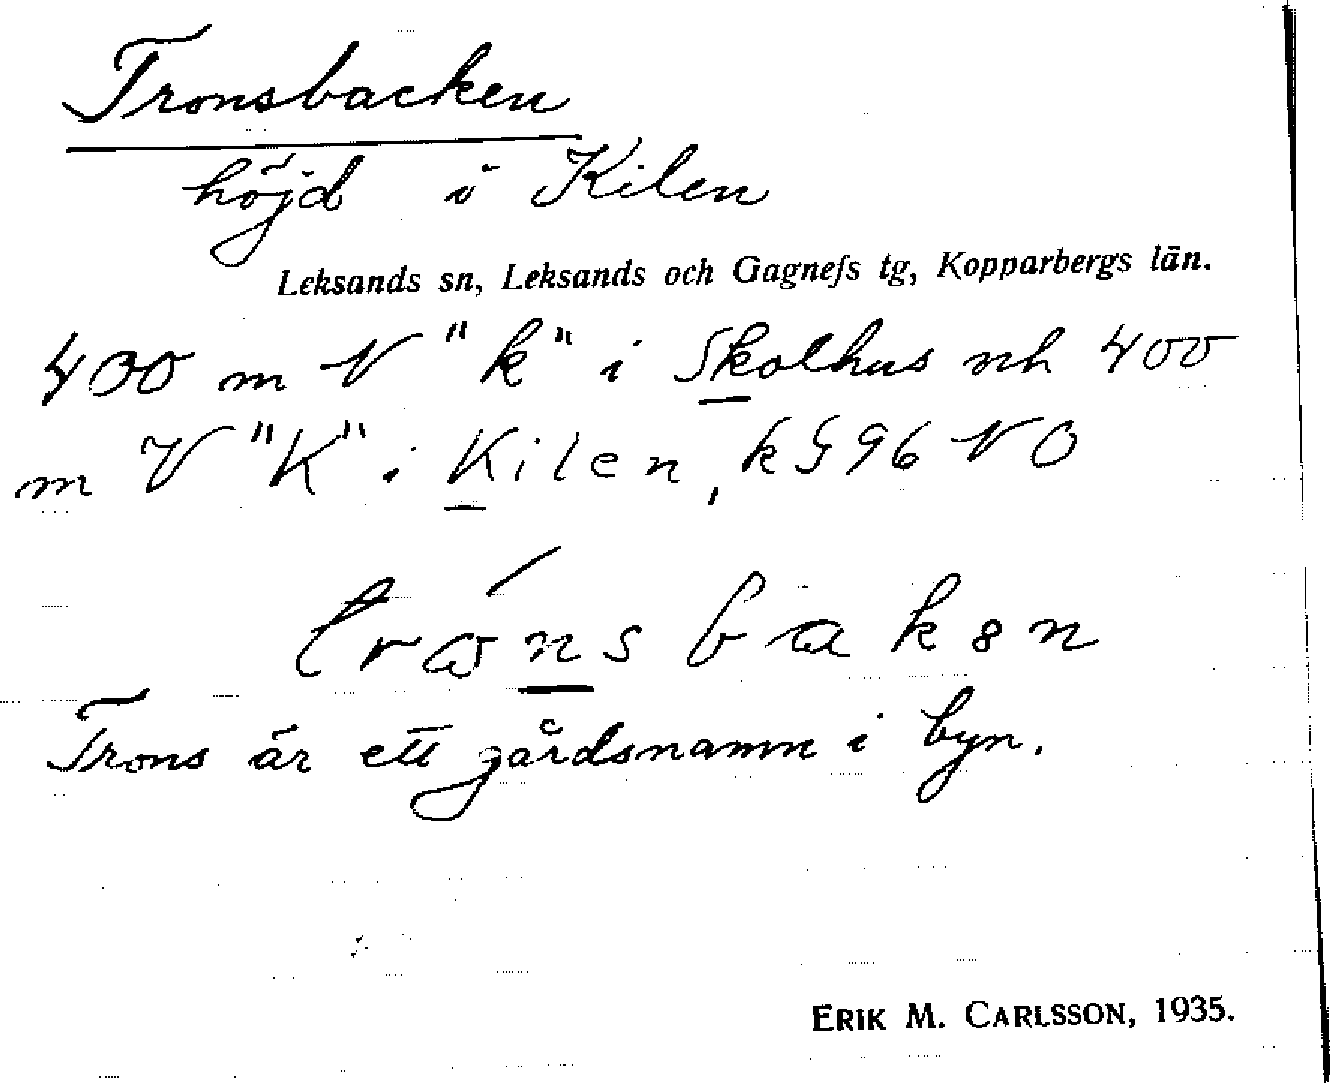 Tronsbacken
höjd i Kilen
Leksands sn, Leksands och Gagnefs tg, Kopparbergs län.
400 m N "k" i Skolhus och 400
m V "K" i Kilen, k § 96 NO
tra͡ónsbakən
Trons är ett gårdsnamn i byn.
ERIK M. CARLSSON, 1935.